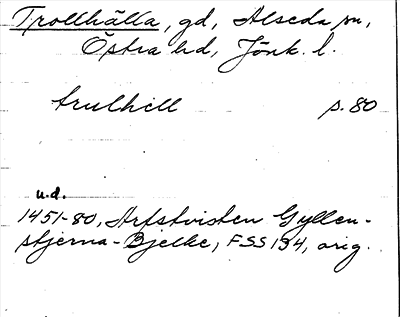 Trollhälla, gd, Alseda sn,
Östra hd, Jönk. l.
trulhill p. 80
u.d.
1451-80, Arfstvisten Gyllen-
stjerna-Bjelke, FSS 134, orig.